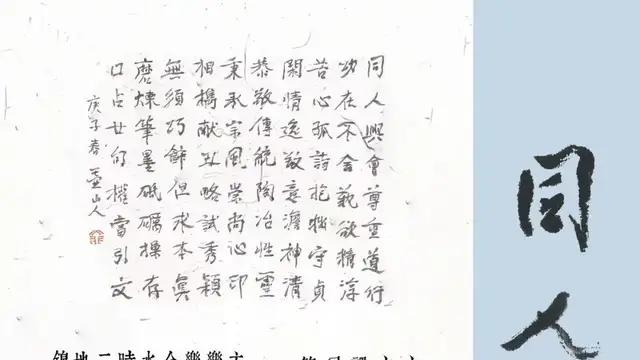 同人
同人興會尊重道行
功在不舍藐欲精淳
苦心孤詣抱拙守貞
閑情逸致意澹神清
恭敬傳統陶冶性靈
秉承宗風崇尚心印
相攜献丑略試秀穎
無須巧飾但求本真
磨煉筆墨砥礪操存
口占廿句權當引文
庚子春 壺山人